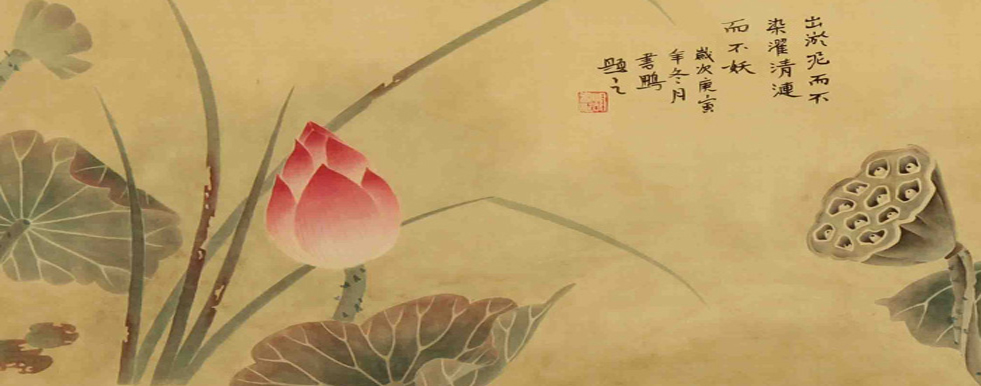 出淤泥而不
染濯清漣
而不妖
歲次庚寅
年冬月
書鵬
題之